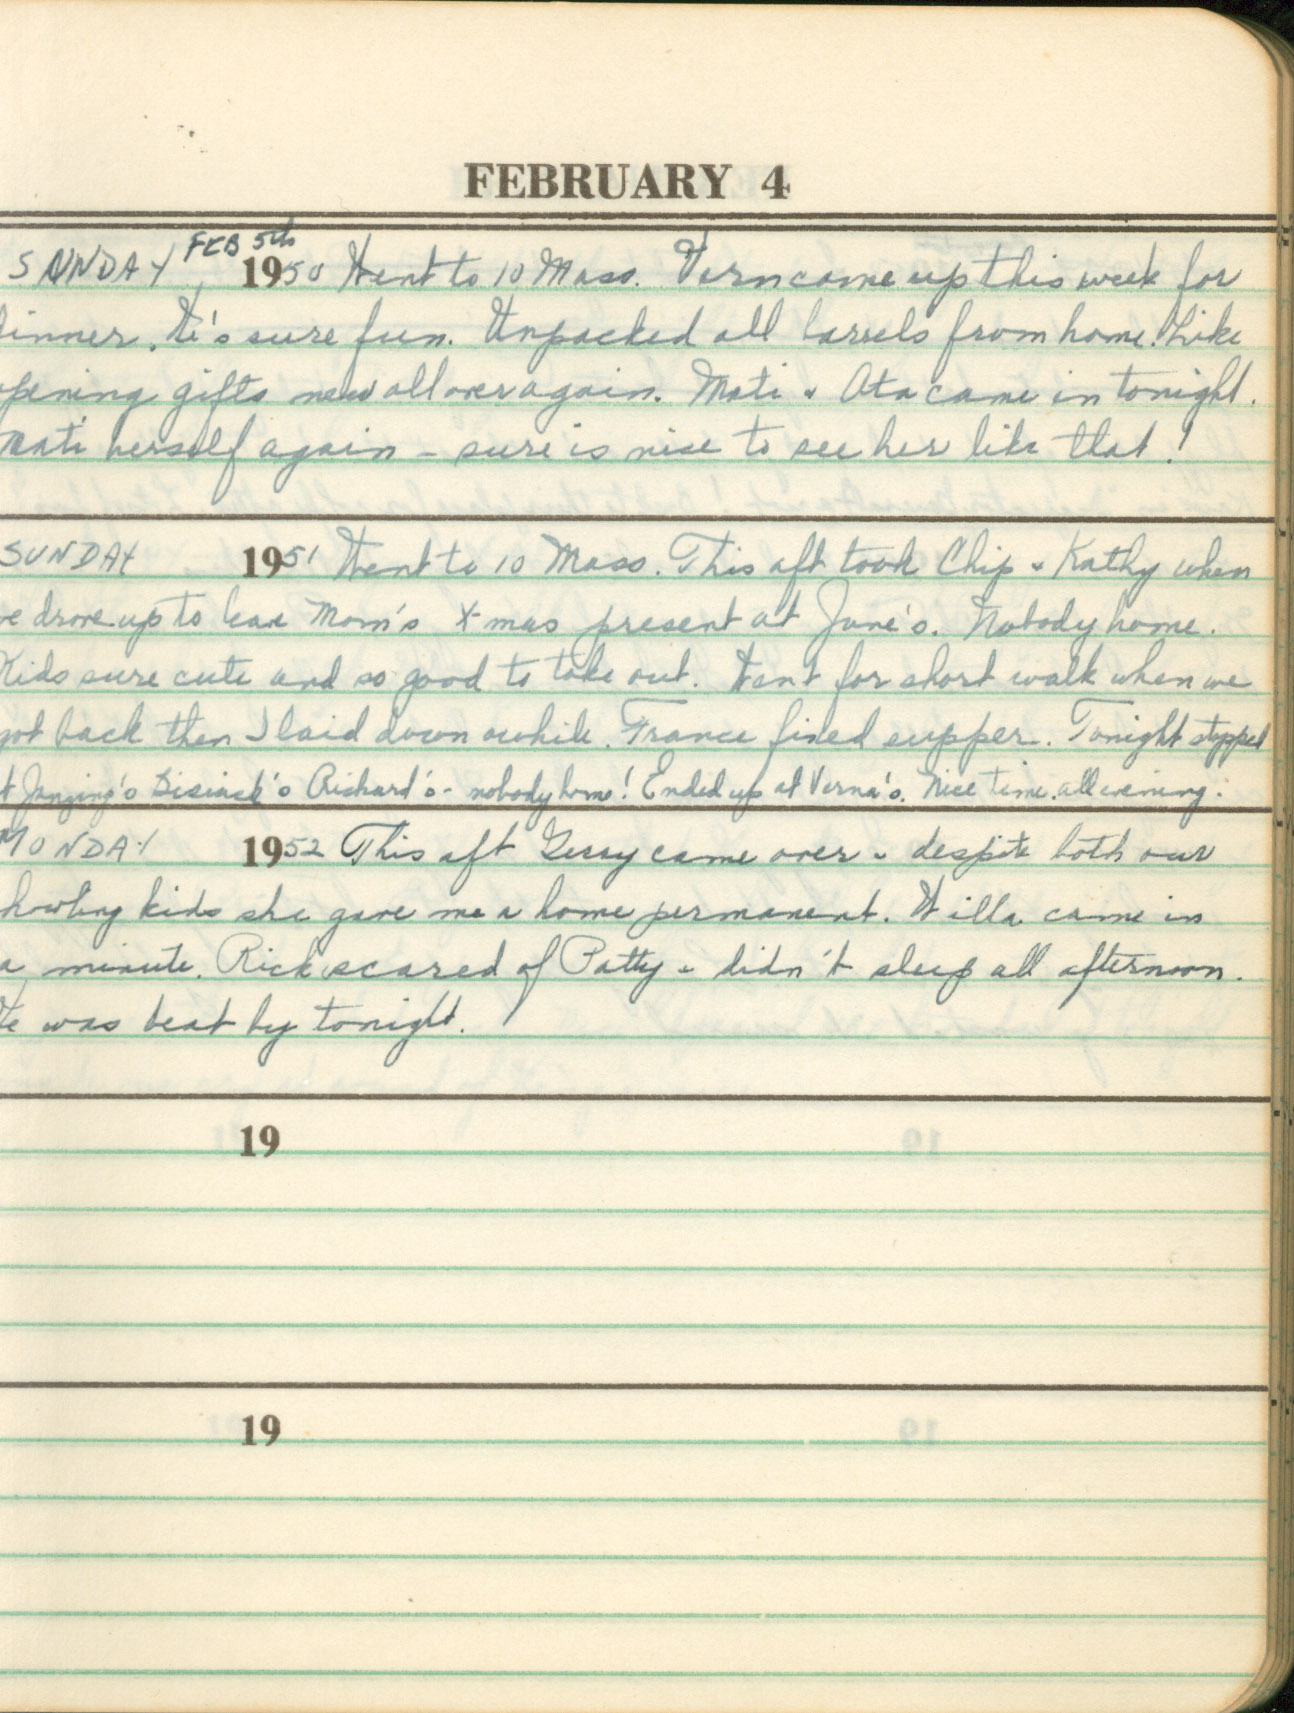 FEBRUARY 4
SUNDAY FEB 5th 1950 Went to 10 Mass. Vern came up this week for
dinner. It's sure fun. Unpacked all barrels from home! Like
opening gifts new all over again. Mati & Ata came in tonight.
Mati herself again - sure is nice to see her like that!
SUNDAY 1951 Went to 10 Mass. This aft took Chip & Kathy when
we drove up to leave Mom's X-mas present at June's. Nobody home.
Kids sure cute and so good to take out. Went for short walk when we
got back then I laid down awhile. France fixed supper. Tonight stopped
at Richard's - nobody home! Ended up at Verna's. Nice time all evening.
MONDAY 1952 This aft Gerry came over & despite both our
howling kids she gave me a home permanent. Willa came in
a minute. Rick scared of Patty & didn't sleep all afternoon.
He was beat by tonight.
19
19